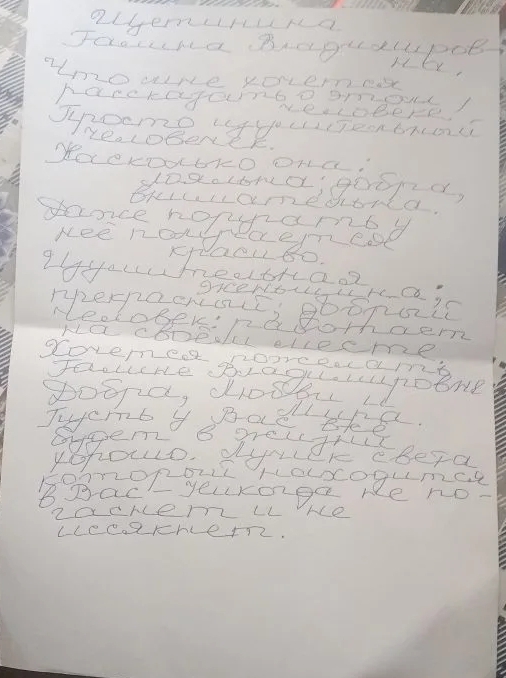 Щетинина
Галина Владимиров-
на.
Что мне хочется
рассказать о этом
человеке!
Просто изумительный
человек.
Насколько она:
лояльна; добра,
внимательна.
Даже поругать у
неё получается
красиво.
Изумительная
женщина;
прекрасный, добрый
человек: работает
на своём месте
Хочется пожелать
Галине Владимировне:
Добра, Любви и
Мира.
Пусть у Вас всё
будет в жизни
хорошо. Лучик света
который находится
в Вас - никогда не по-
гаснет и не
иссякнет.